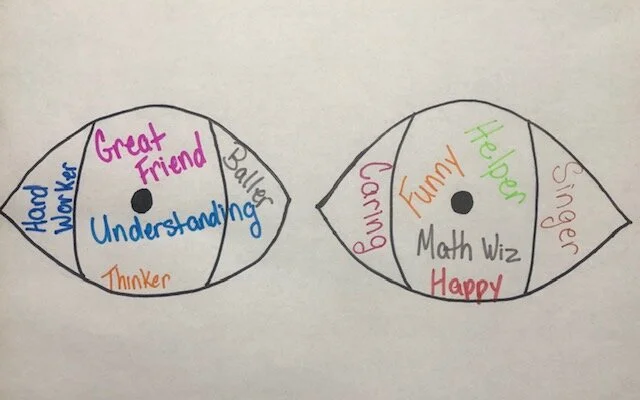 Hard
Worker
Great
Friend
Understanding
Thinker
Baller
Caring
Funny
Helper
Math Wiz
Happy
Singer